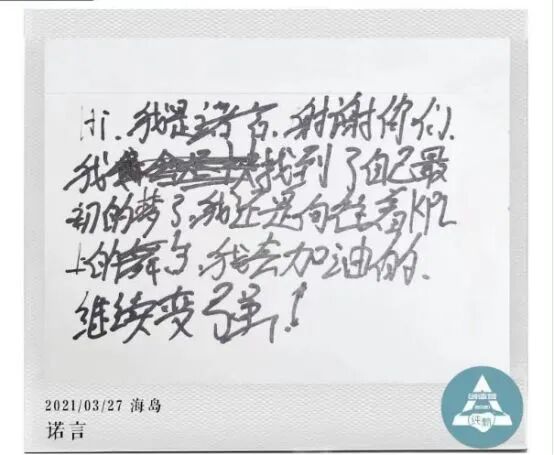 Hi、我是诺言、谢谢你们、
我找到了自己最
初的梦了,我还是向往着KPL
上的舞台,我会加油的、
继续变强!
2021/03/27 海岛
诺言